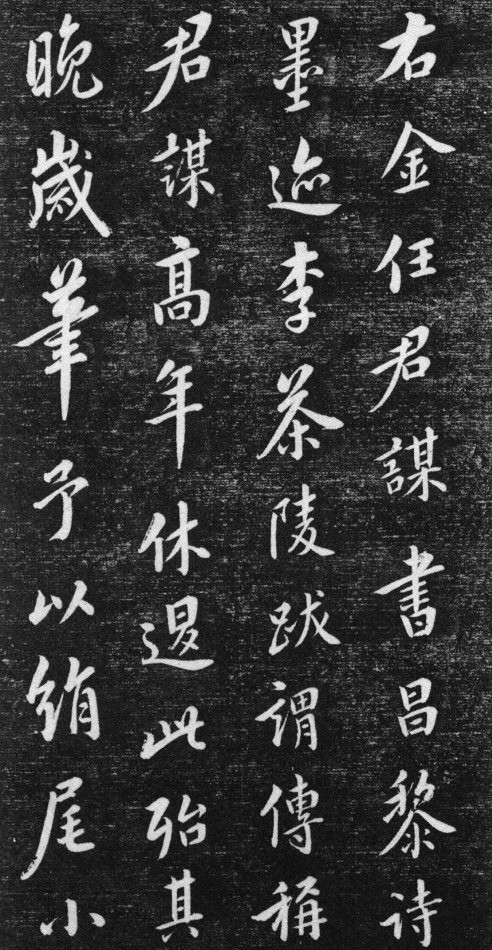 右金任君謀書昌黎詩
墨迹李茶陵跋謂傳稱
君謀高年休退此殆其
晚歲筆予以絹尾小